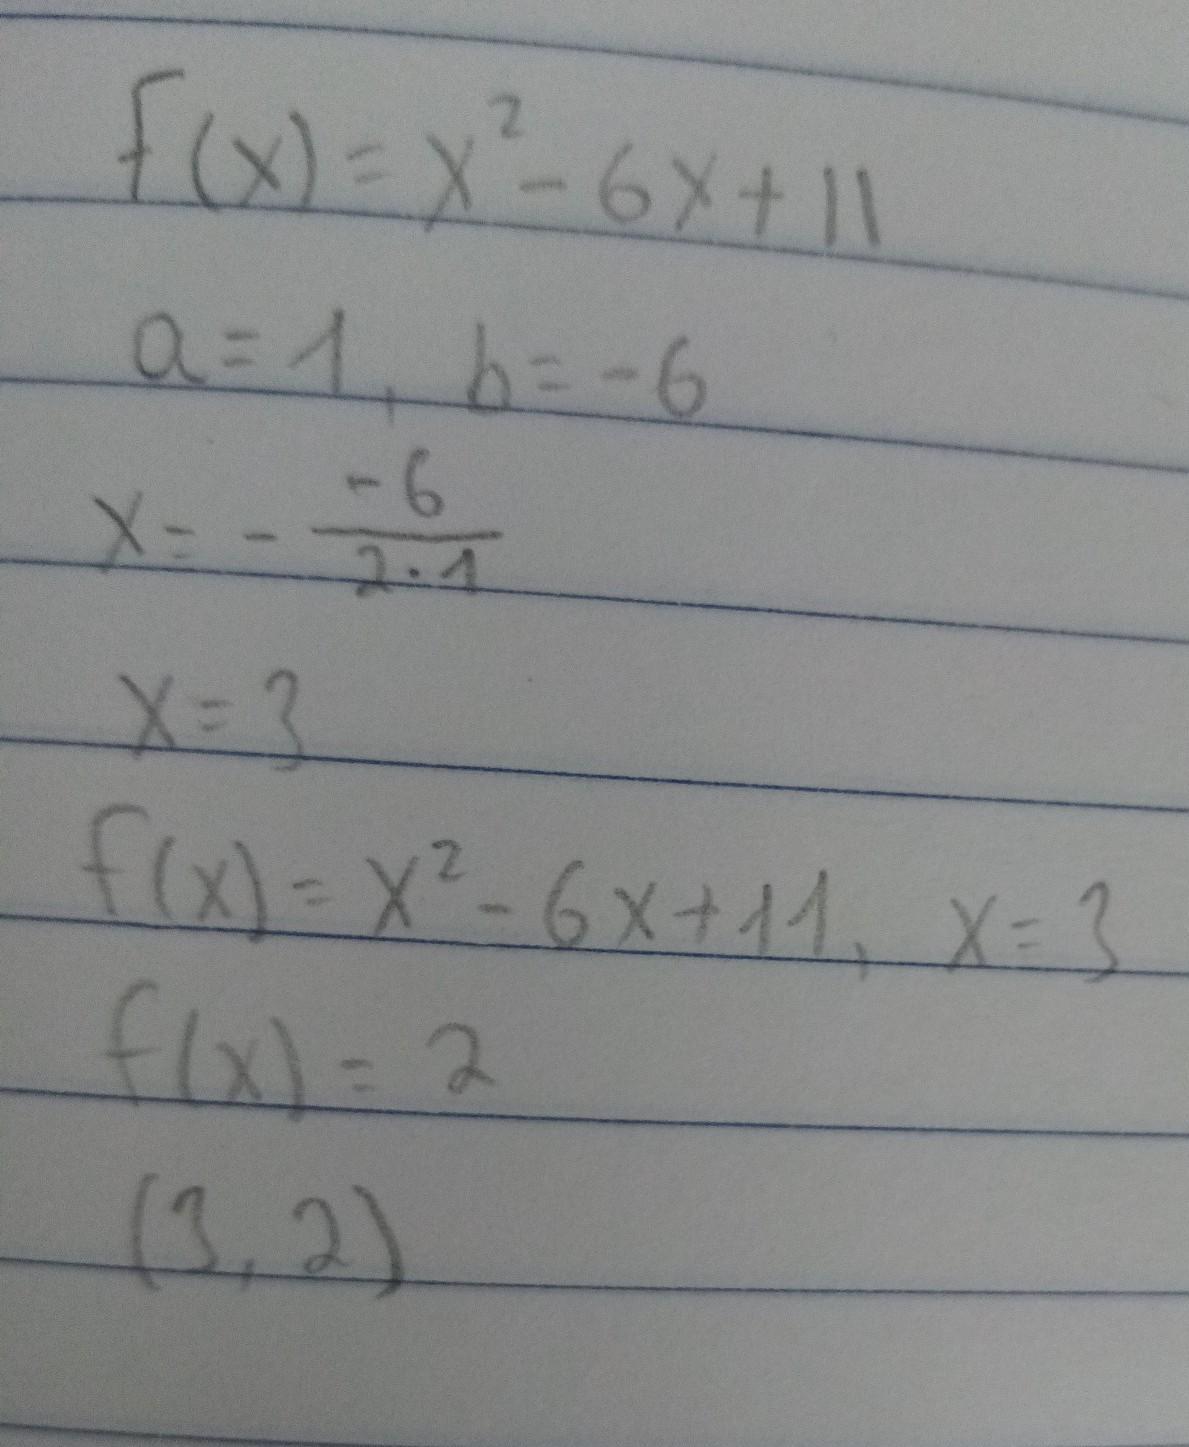 f(x) = x² - 6x + 11
a = 1, b = -6
x = - \frac{-6}{2 · 1}
x = 3
f(x) = x² - 6x + 11, x = 3
f(x) = 2
(3, 2)